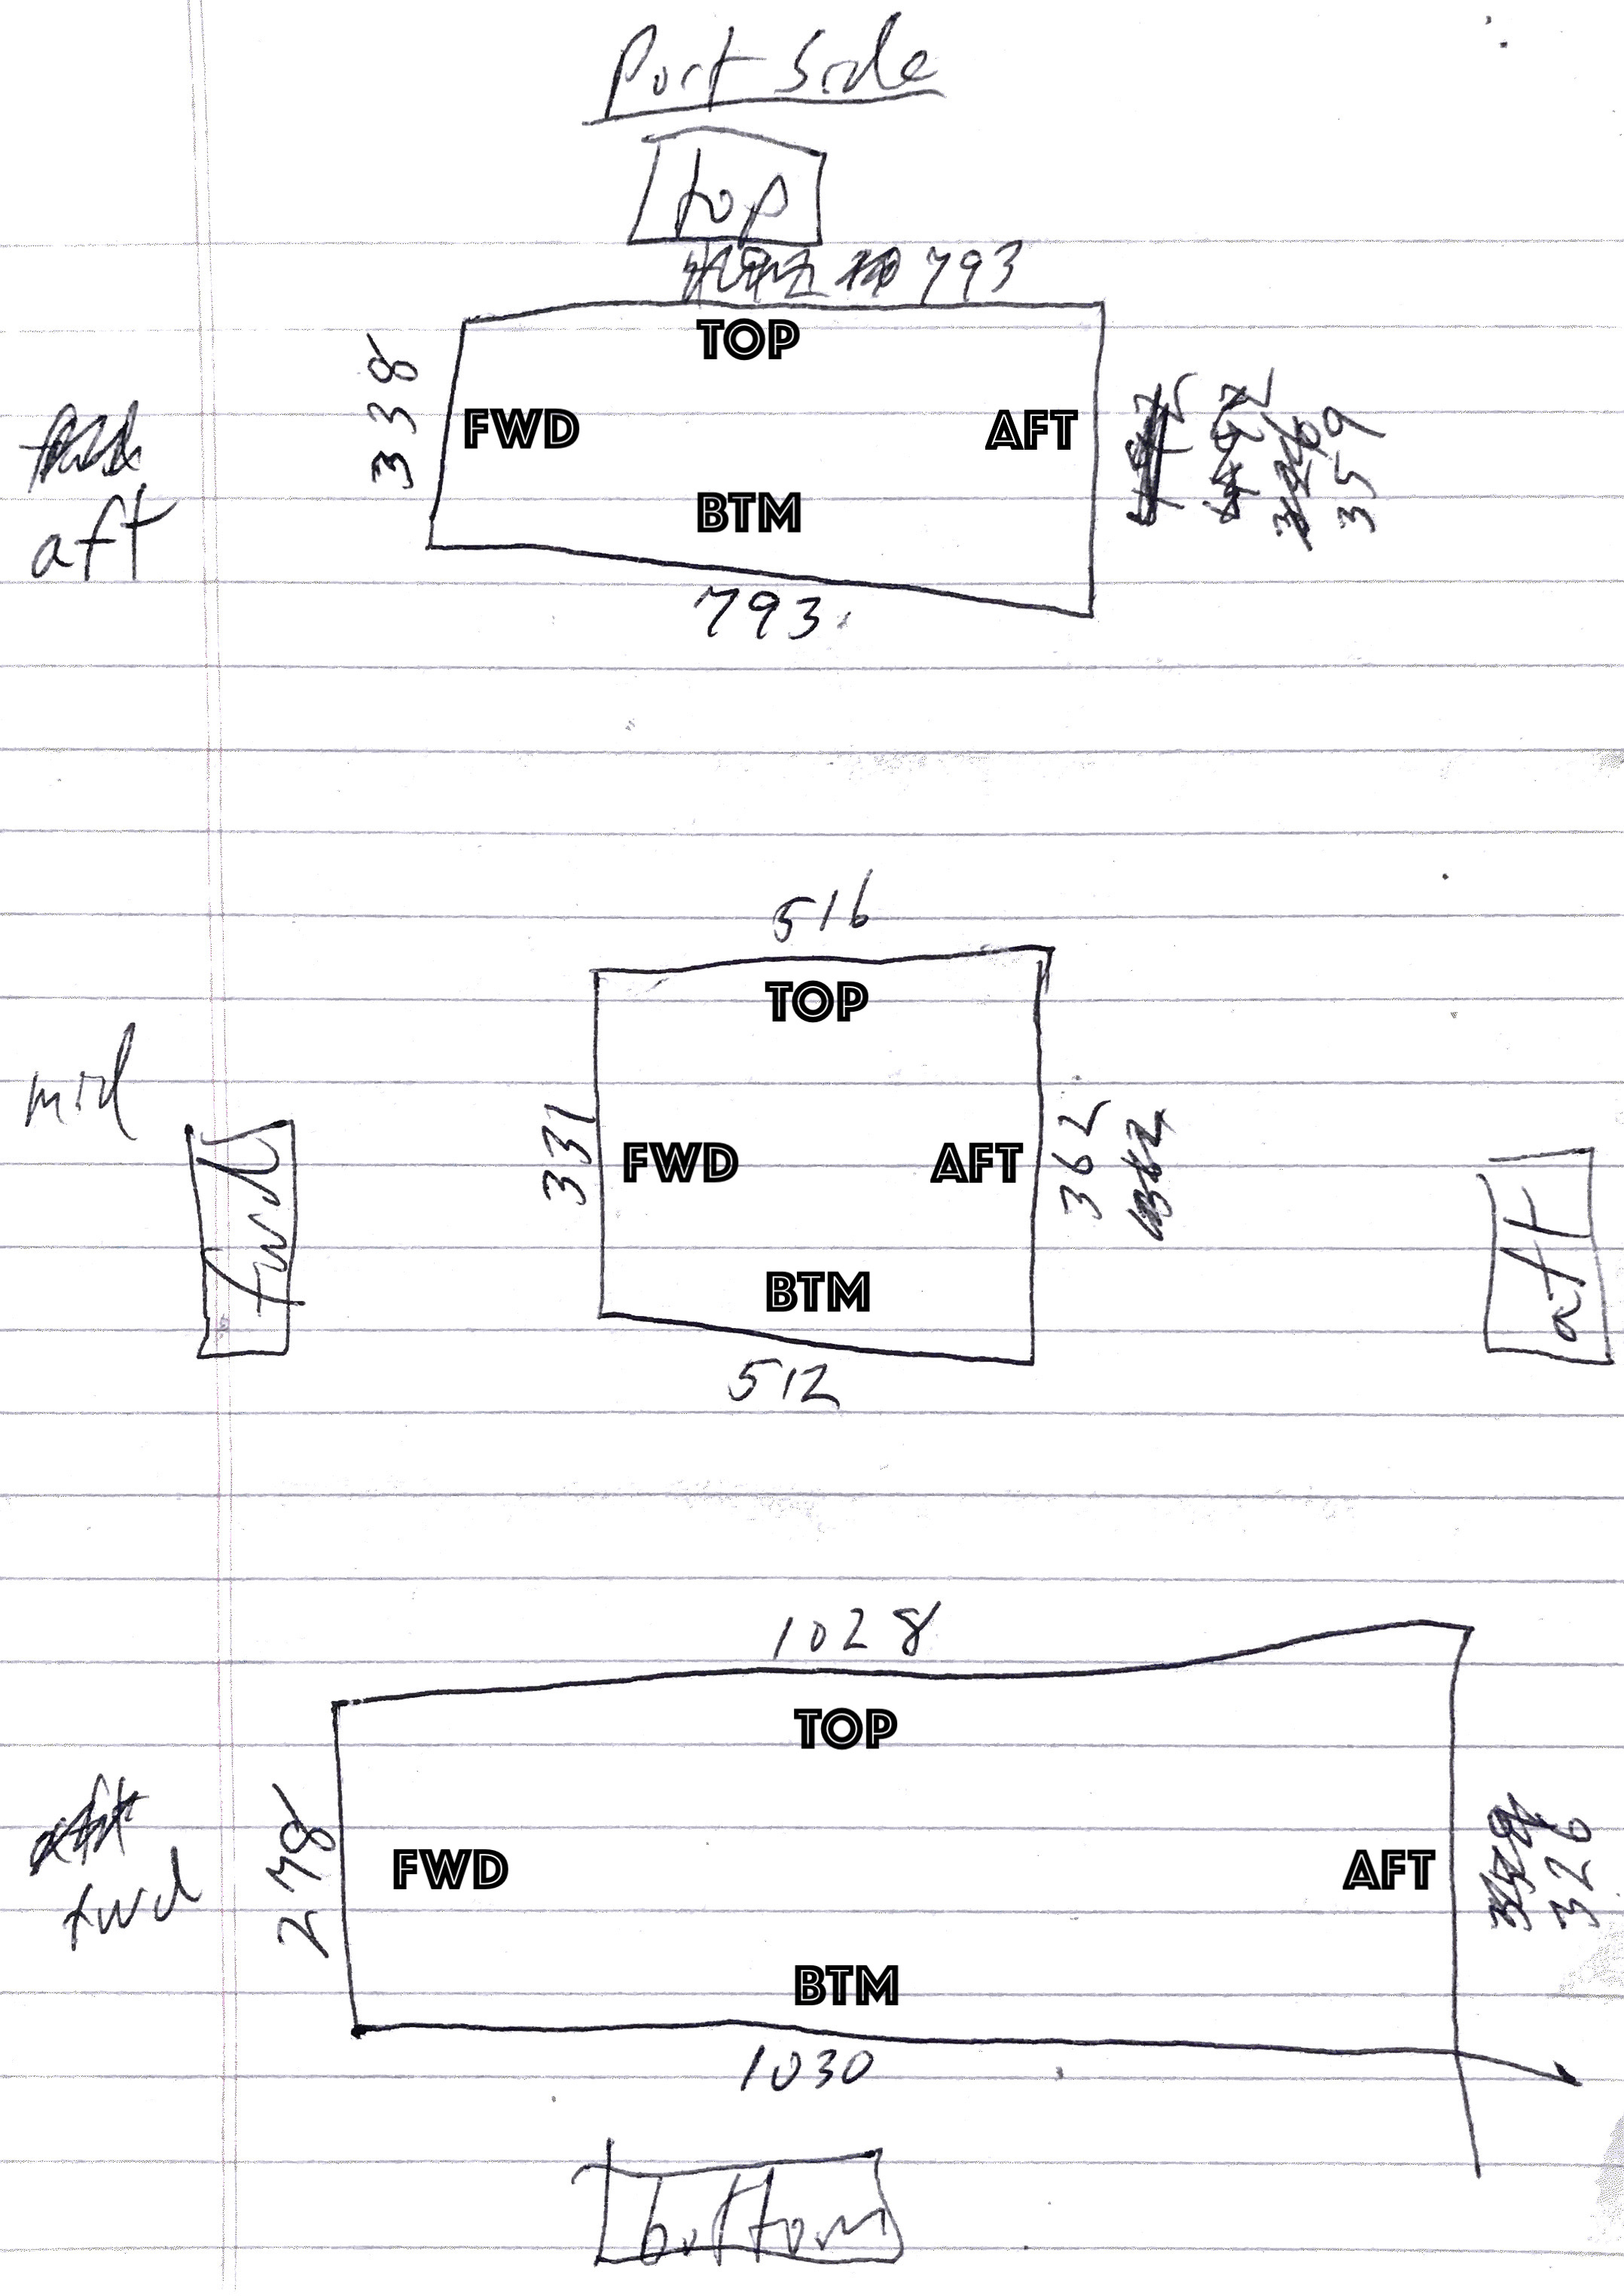 Port Side
top
793
TOP
338
FWD
AFT
359
aft
BTM
793
516
TOP
mid
331
FWD
AFT
362
fwd
aft
BTM
512
1028
TOP
278
FWD
AFT
326
fwd
BTM
1030
bottom